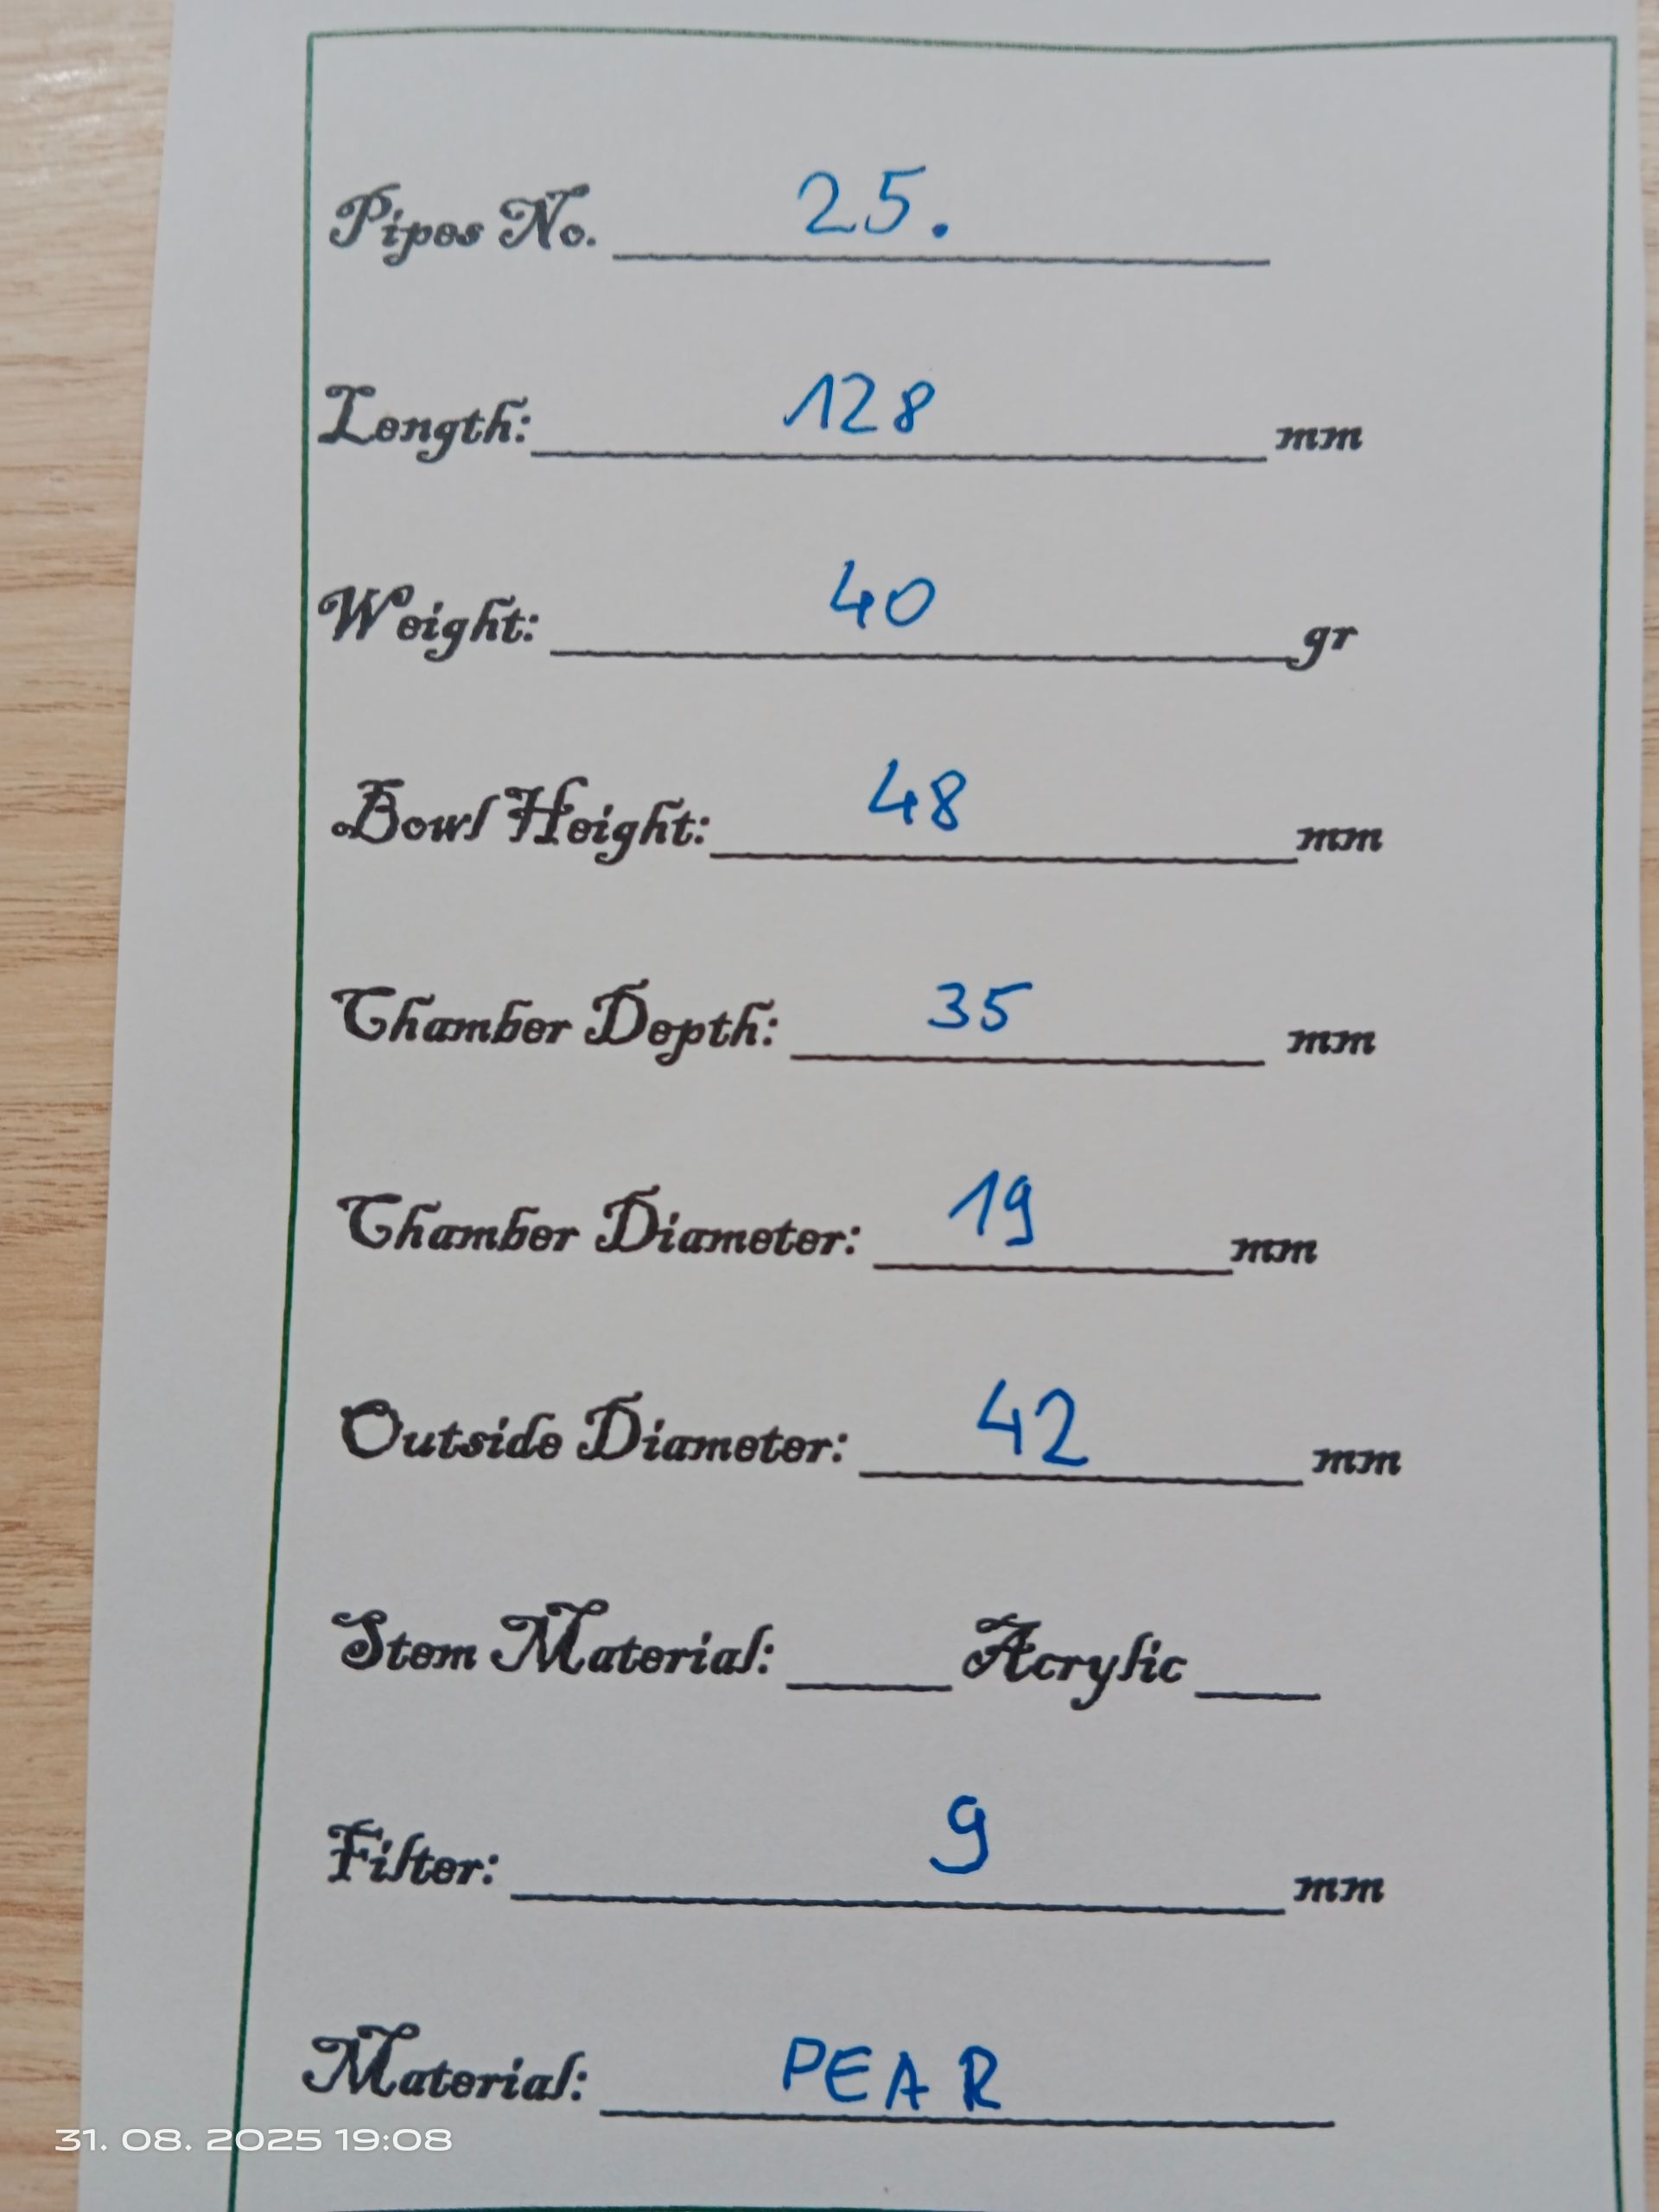 Pipes No. 25.
Length: 128 mm
Weight: 40 gr
Bowl Height: 48 mm
Chamber Depth: 35 mm
Chamber Diameter: 19 mm
Outside Diameter: 42 mm
Stem Material: _____ Acrylic ____
Filter: 9 mm
Material: PEAR
31. 08. 2025 19:08